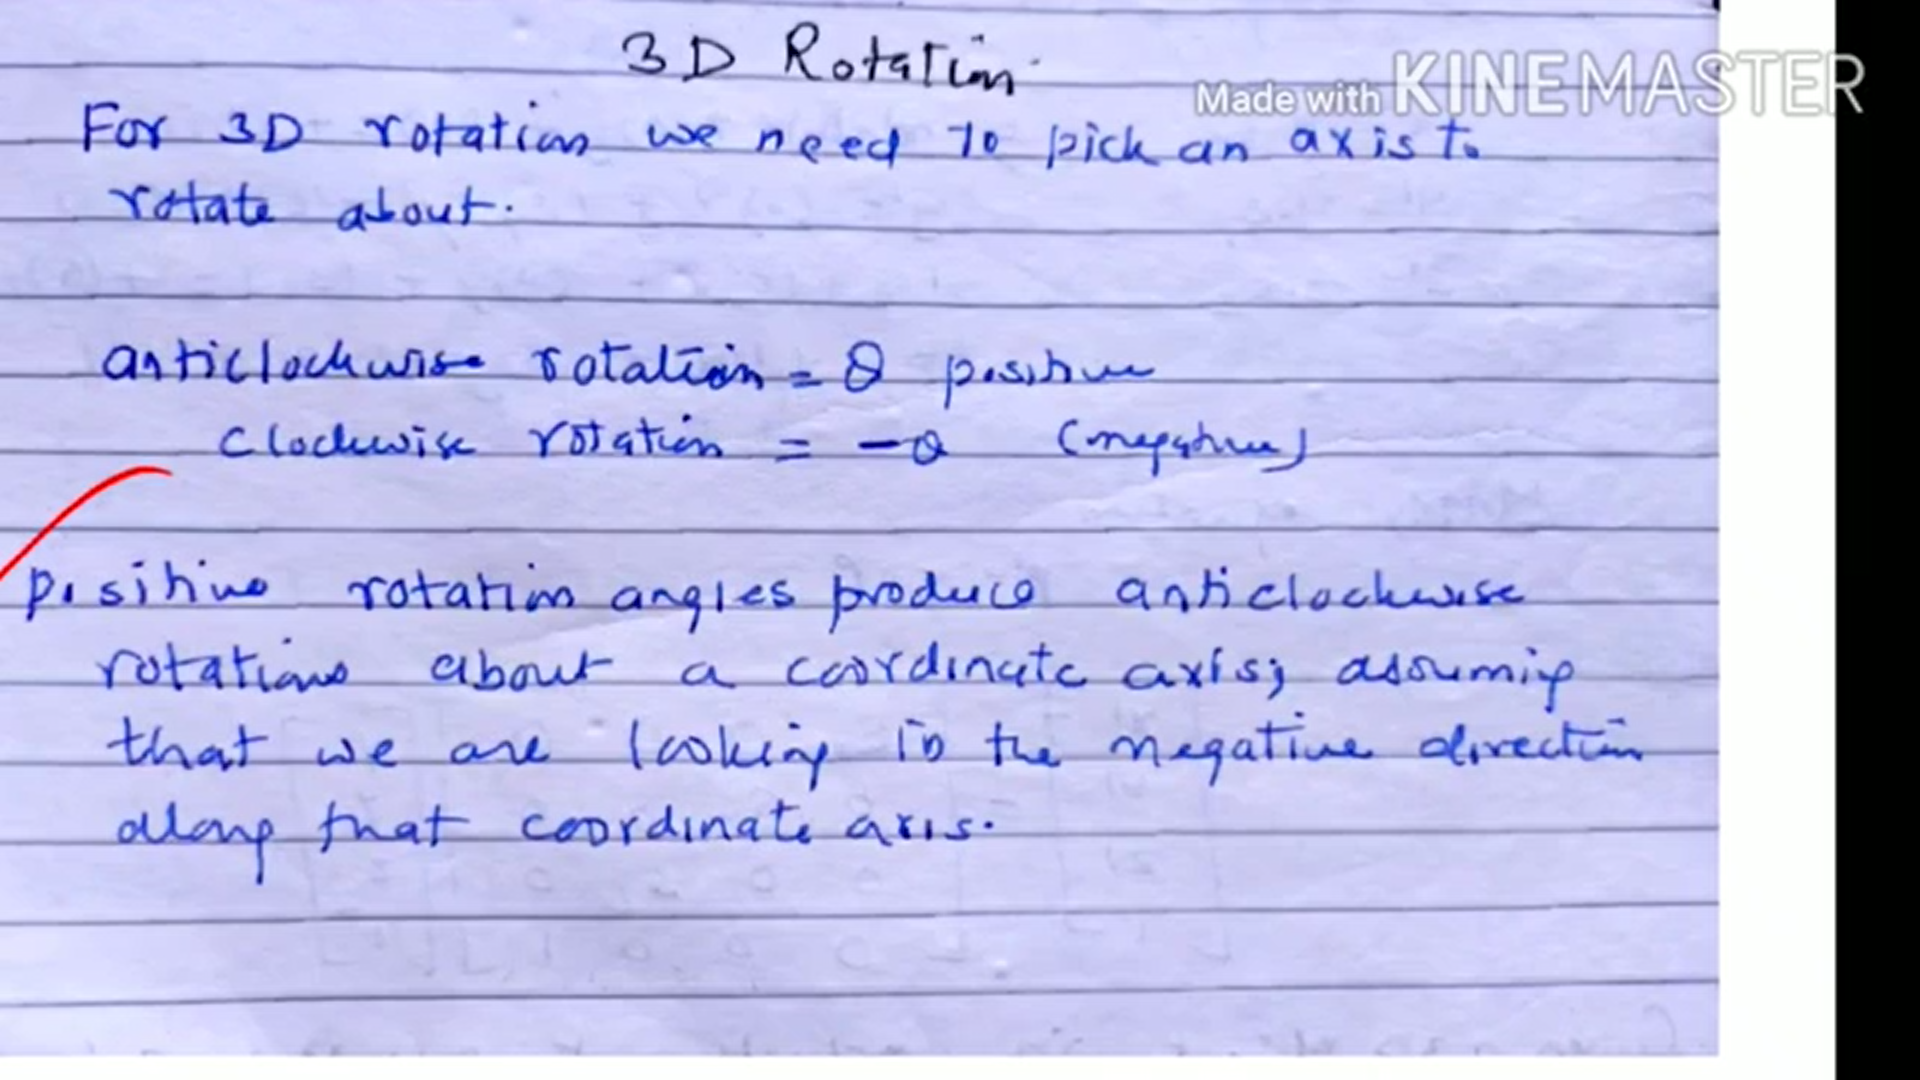 3D Rotation
Made with KINEMASTER
For 3D rotation we need to pick an axis to
rotate about.
anticlockwise rotation = θ positive
clockwise rotation = -θ (negative)
positive rotation angles produce anticlockwise
rotations about a coordinate axis; assuming
that we are looking in the negative direction
along that coordinate axis.